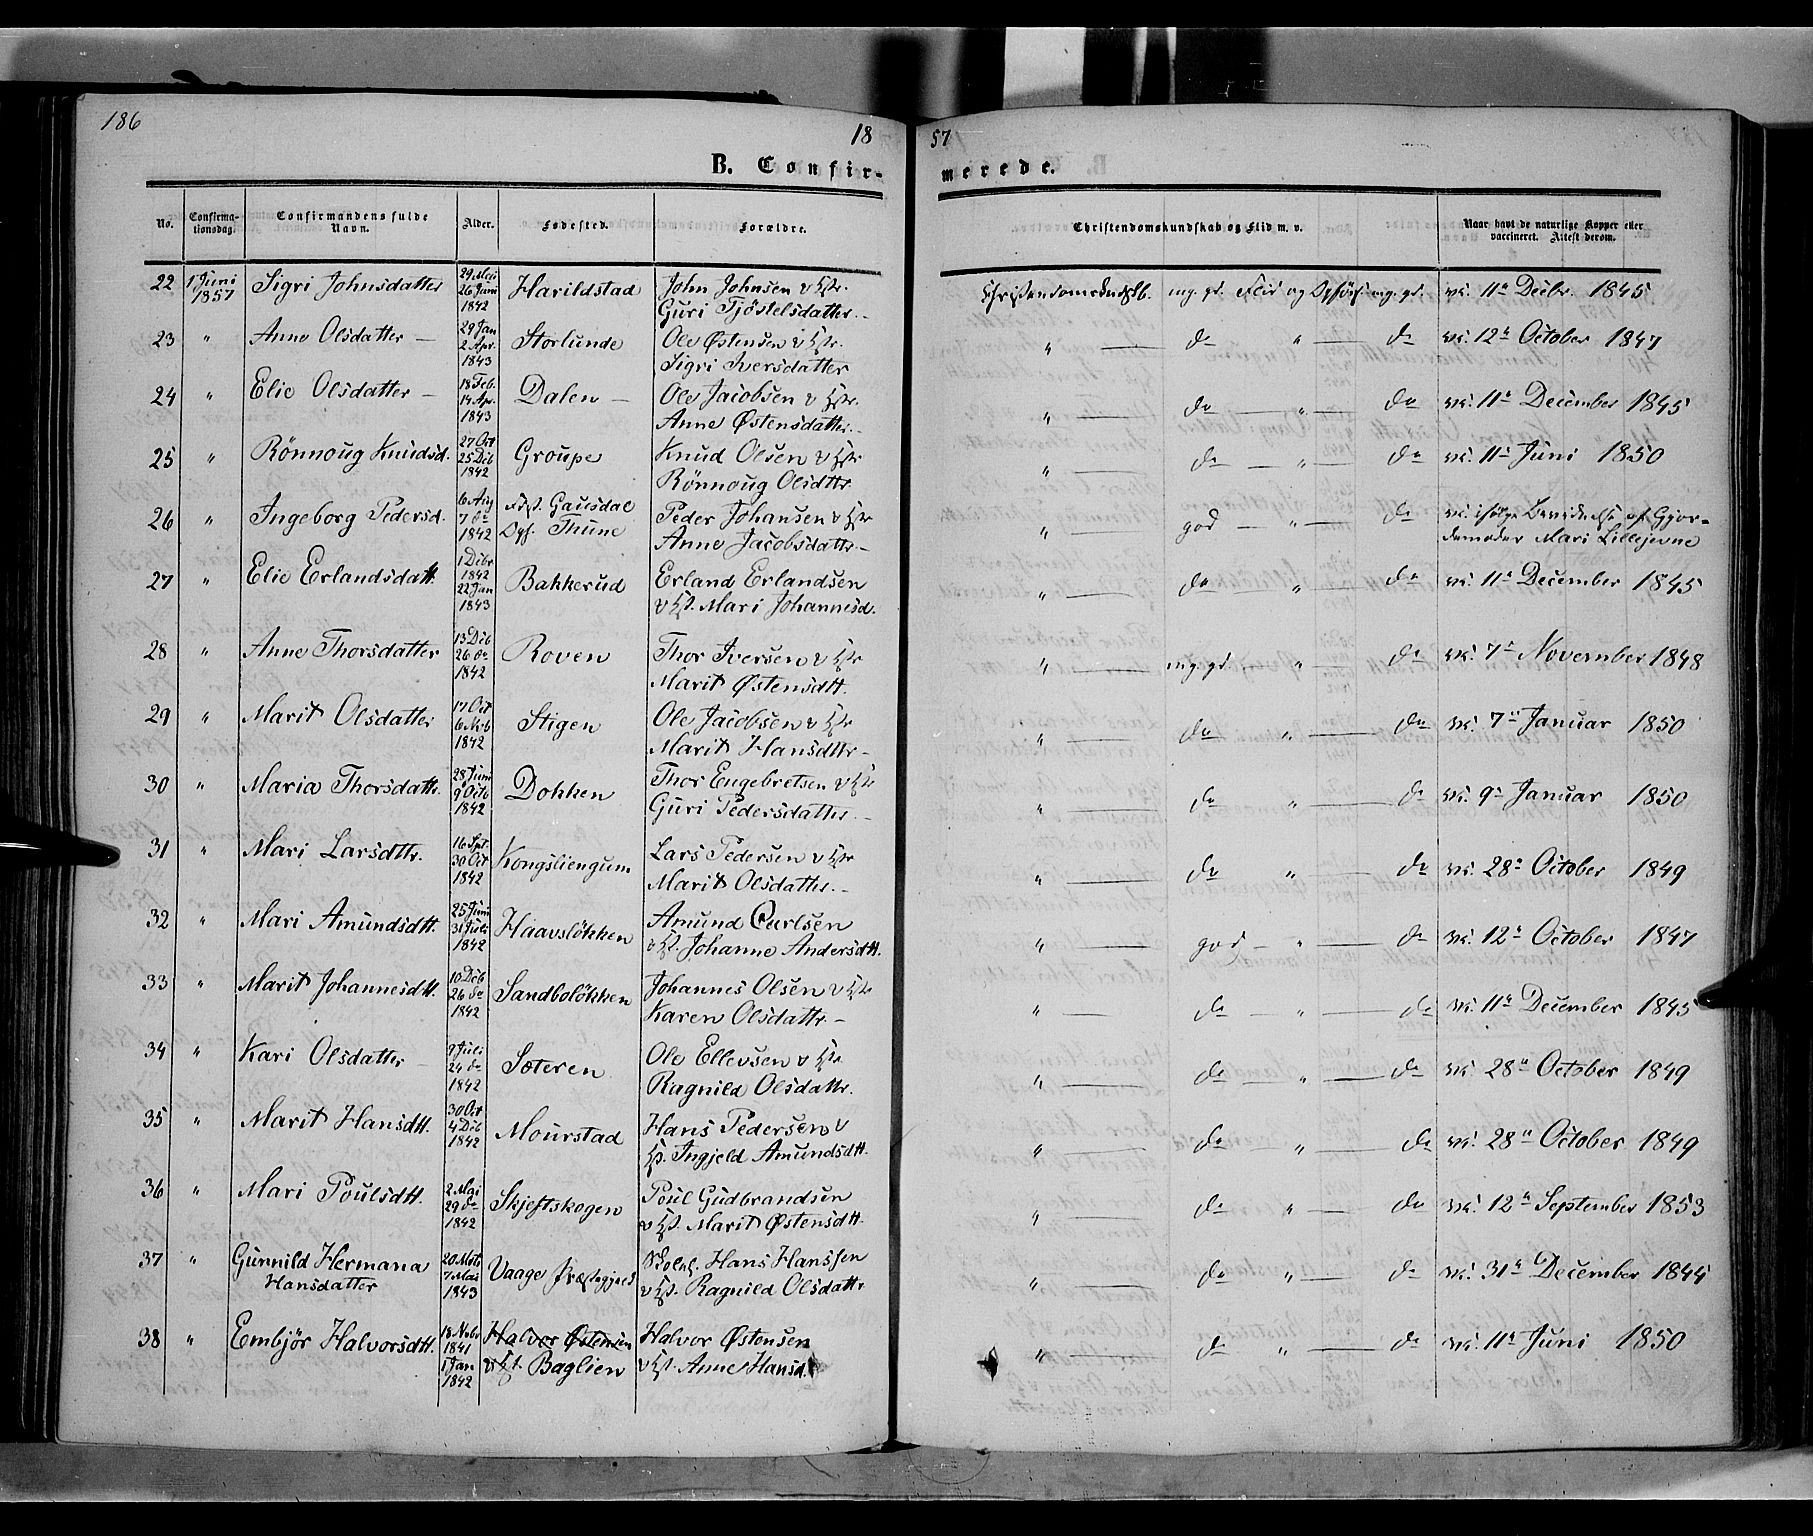 186
18 57
B. Confirmerede.
No. Confirmationsdag. Confirmandens fulde Navn. Alder. Fødested. Forældre. Christendomskundskab og Flid m. v. Naar havt de naturlige Kopper eller vaccineret. Attest derom.
22 1 Juni 1857 Sigri Johnsdatter 29 Mai 26 Juni 1842 Harildstad John Johnsen v Hstr. Guri Tjöstelsdatter. Christendomskndskb. mg. gd. Flid og Opförs. mg. gd. vc. 11te Decbr. 1845
23 " Anne Olsdatter 29 Jan 2 Apr. 1843 Storlunde Ole Østensen v Hstr. Sigri Iversdatter " do " do vc. 12te October 1847
24 " Elie Olsdatter 18 Feb. 14 Apr. 1843 Dalen Ole Jacobsen v Hstr. Anne Østensdatter. " do " do vc. 11te December 1845
25 " Rönnoug Knudsd. 27 Oct 25 Dcb 1842 Groupe Knud Olsen v Hstr Rönnoug Olsdttr. " do " do vc. 11te Juni 1850
26 " Ingeborg Pedersd. 6 Aug 7 do 1842 Fdst. Gausdal Opf. Thune Peder Johansen v Hstr Anne Jacobsdattr. " god " do vc. ifölge Bevidnelse af Gjordemoder Mari Lillejevne
27 " Elie Erlandsdatt. 1 Dcbr 1842 22 Jan 1843 Bakkerud Erland Erlandsen v Hst. Mari Johannesd. " do " do vc. 11te December 1845
28 " Anne Thorsdatter 13 Dcb 26 do 1842 Roven Thor Iversen v Hstr Marit Østensdtt. " mg. gd. " do vc. 7de November 1848
29 " Marit Olsdatter 17 Oct 6 Nvb 1842 Stigen Ole Jacobsen v Hstr Marit Hansdttr. " do " do vc. 7de Januar 1850
30 " Maria Thorsdattr. 28 Juni 9 Octb 1842 Dokken Thor Engebretsen v Hstr Guri Pedersdatter. " do " do vc. 9de Januar 1850
31 " Mari Larsdttr. 16 Spt. 30 Oct 1842 Kongsliengum Lars Pedersen v Hstr Marit Olsdatter. " do " do vc. 28de October 1849
32 " Mari Amundsdtt. 25 Juni 31 Juli 1842 Haavslökken Amund Carlsen v Hst. Johanne Andersdtt. " god " do vc. 12te October 1847
33 " Marit Johannesdtt. 10 Dcb 26 do 1842 Sandbolökken Johannes Olsen v Hstr Karen Olsdattr " do " do vc. 11te December 1845
34 " Kari Olsdatter 9 Juli 24 do 1842 Sæteren Ole Ellevsen v Hstr Ragnild Olsdattr. " do " do vc. 28de October 1849
35 " Marit Hansdtt. 30 Oct 4 Dcb 1842 Mourstad Hans Pedersen v Hst. Ingjeld Amundsdtt. " do " do vc. 28de October 1849
36 " Mari Poulsdtt. 2 Mai 29 do 1842 Skjeftskogen Poul Gudbrandsen v Hst. Marit Østensdtt. " do " do vc. 12te September 1853
37 " Gunnild Hermana Hansdatter 20 Mts 7 Mai 1843 Vaage Præstegjeld Skolel. Hans Hanssen v Hst. Ragnild Olsdattr " do " do vc. 31te December 1844
38 " Embjör Halvorsdtt. 18 Nvbr 1841 1 Jan 1842 Halvor Østensen v Hst. Baglien Halvor Østensen v Hst. Anne Hansd. " do " do vc. 11te Juni 1850